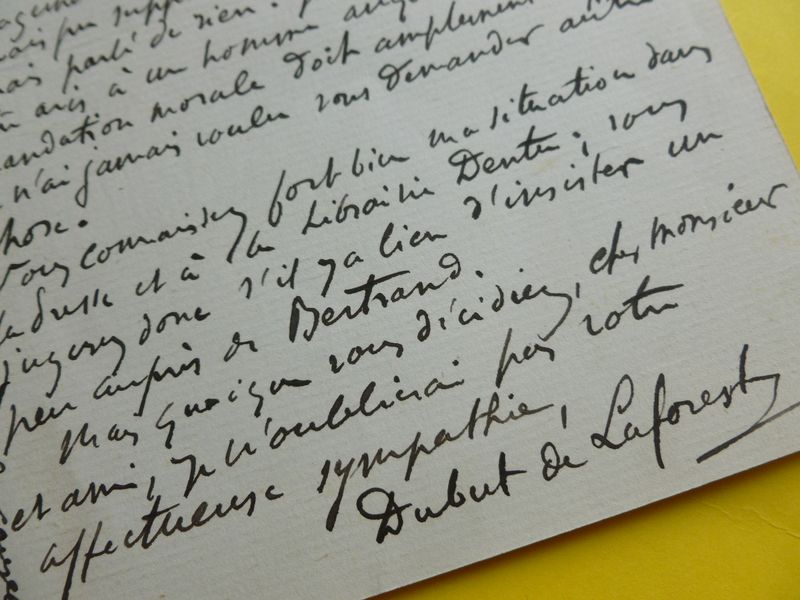 pu supp
parlé de rien.
avis à un homme
andation morale doit amplement
n'ai jamais voulu vous demander autre
chose.
Vous connaissez fort bien ma situation dans
la Presse et à la Librairie Dentu ; vous
jugerez donc s'il y a lieu d'insister un
peu auprès de Bertrand.
Mais quoique vous décidiez, cher Monsieur
et ami, je n'oublierai pas votre
affectueuse sympathie,
Dubut de Laforest